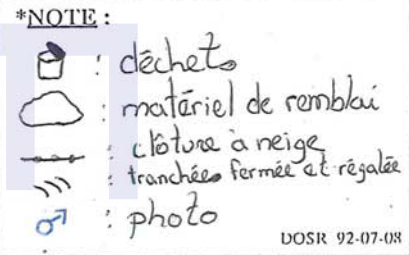 *NOTE :
: déchets
: matériel de remblai
: clôture à neige
: tranchées fermée et régalée
: photo
DOSR 92-07-08